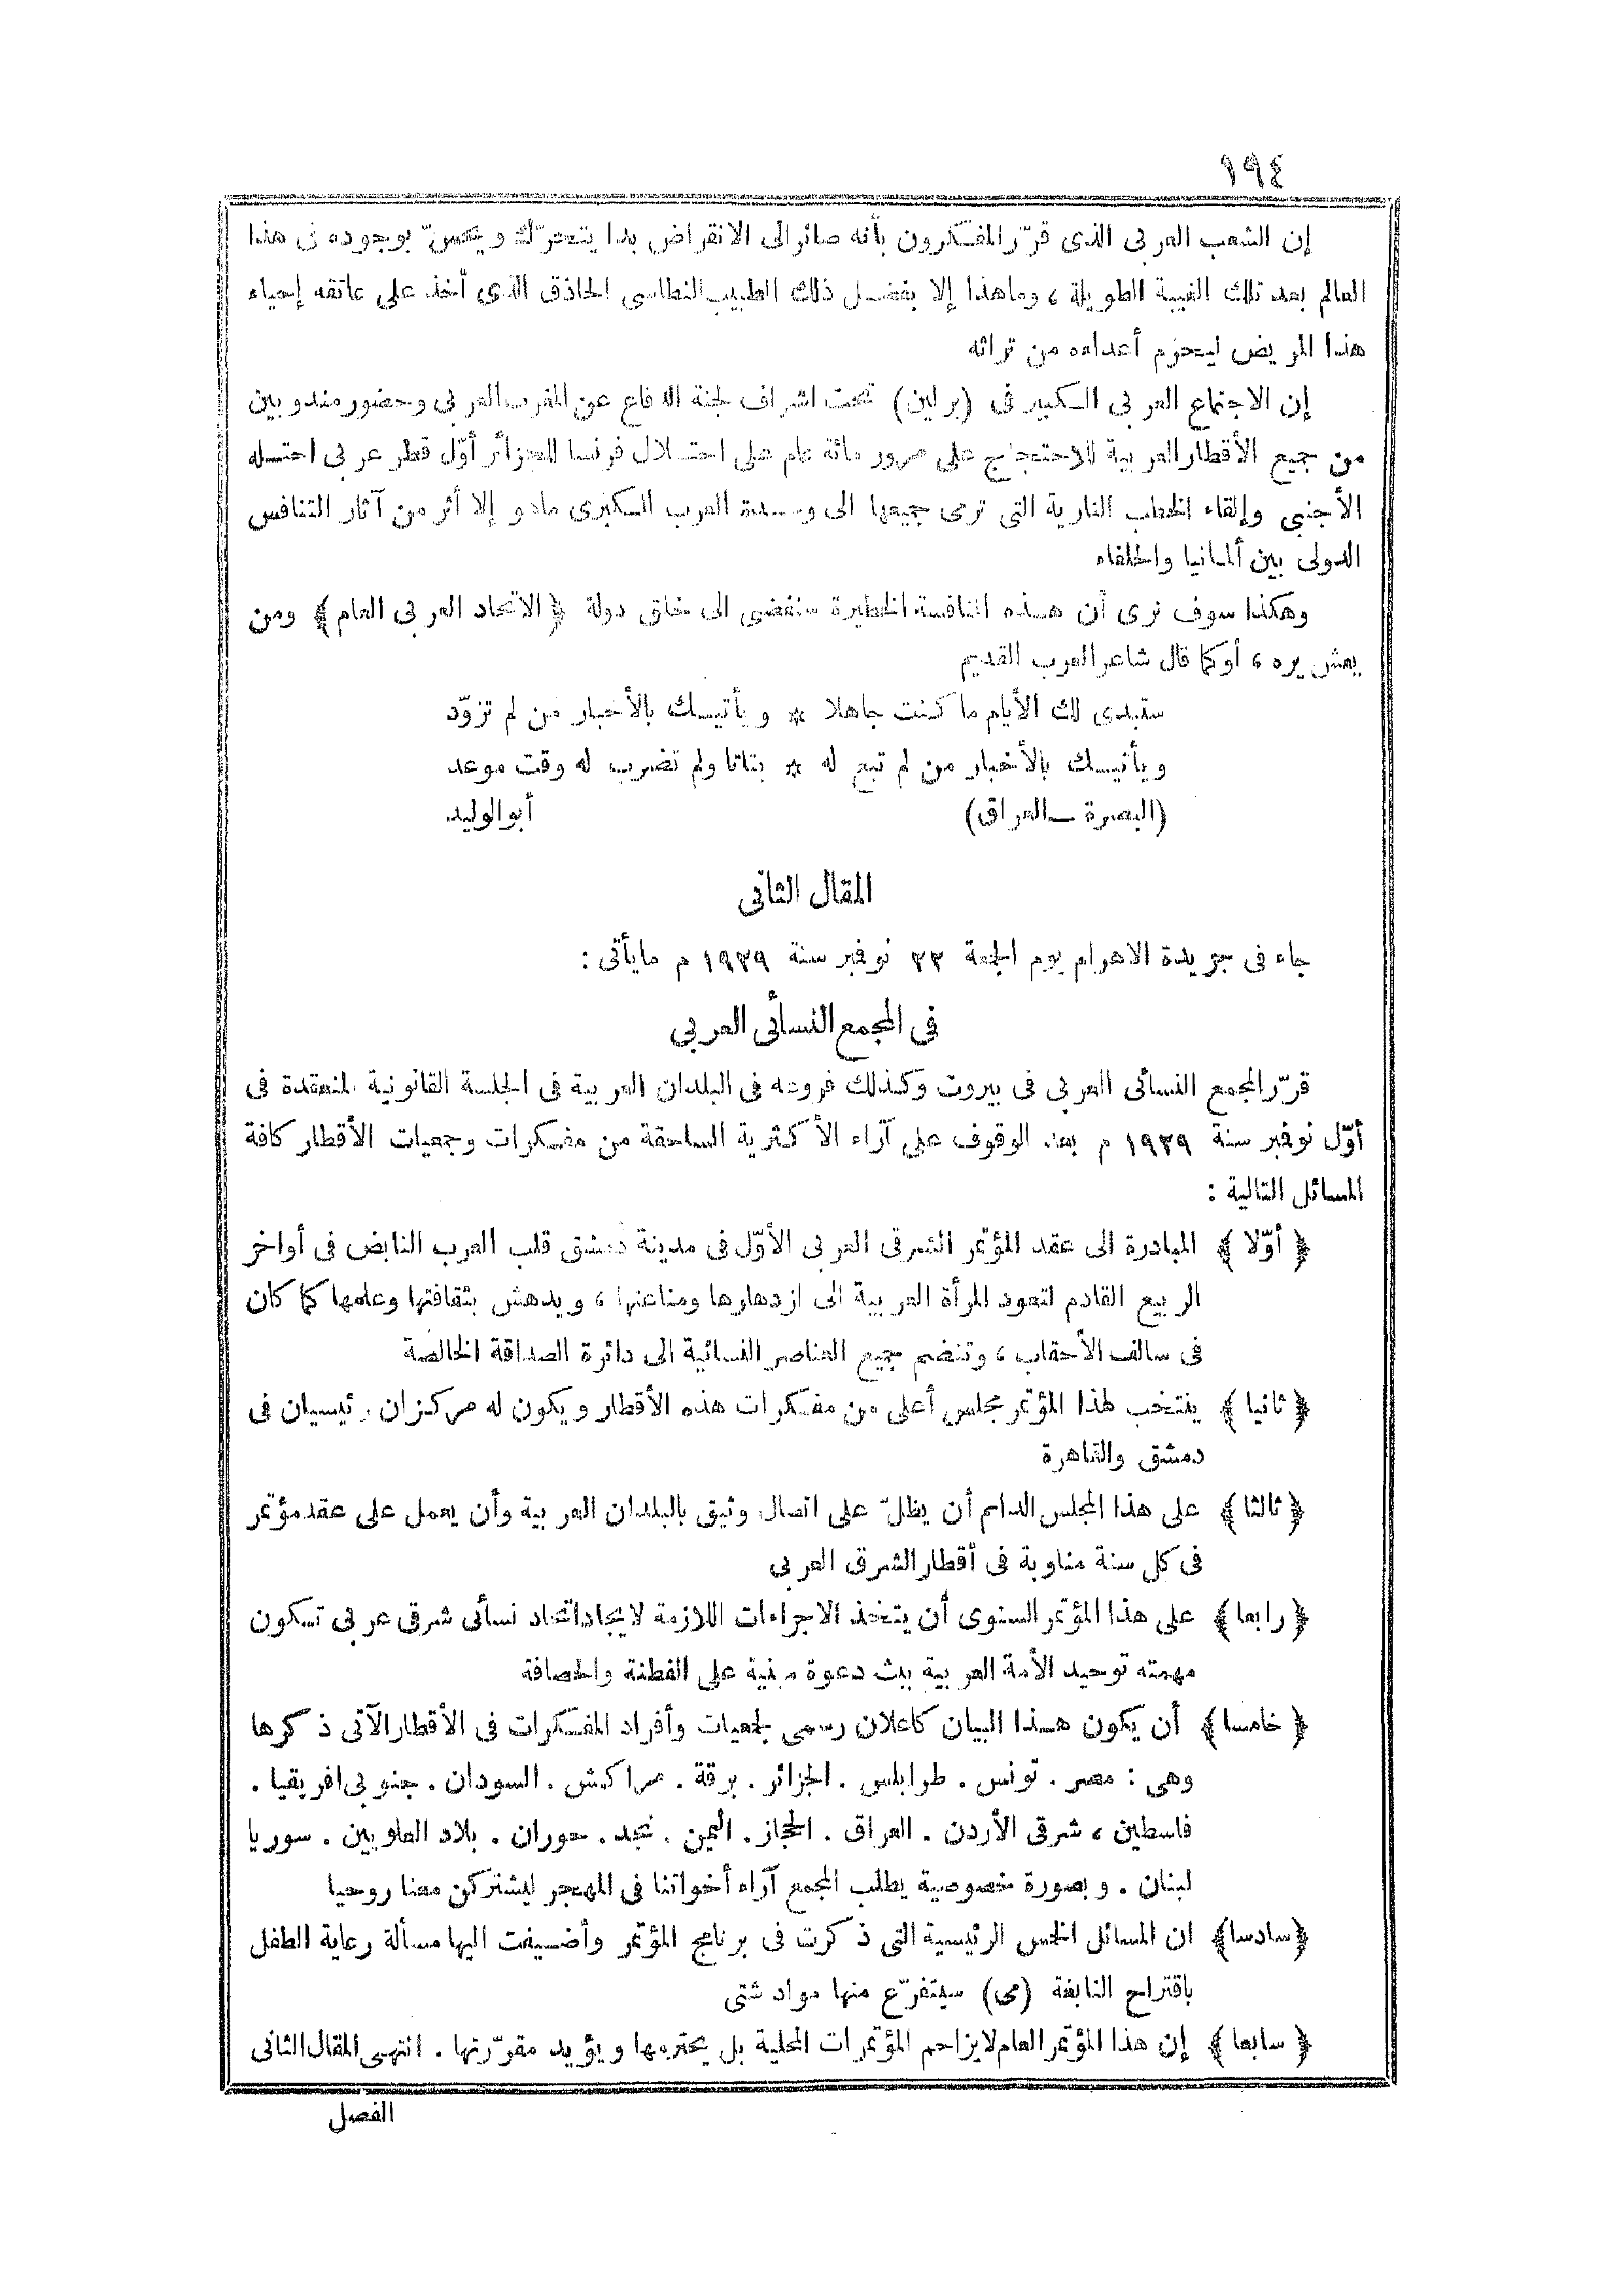 ١٩٤
إن الشعب العربى الذى قرّر المفكرون بأنه صائر الى الانقراض بدا يتحرّك ويحسّ بوجوده فى هذا
العالم بعد تلك الغيبة الطويلة ، وماهذا إلا بفضل ذلك الطبيب النطاسى الحاذق الذى أخذ على عاتقه إحياء
هذا المريض ليحزم أعداءه من تراثه
إن الاجتماع العربى الكبير فى (برلين) تحت اشراف لجنة الدفاع عن المغرب العربى وحضور مندوبين
من جميع الأقطار العربية للاحتجاج على مرور مائة عام على احتلال فرنسا للجزائر أوّل قطر عربى احتله
الأجنبى وإلقاء الخطب النارية التى ترمى جميعها الى وحدة العرب الكبرى ماهو إلا أثر من آثار التنافس
الدولى بين ألمانيا والحلفاء
وهكذا سوف نرى أن هذه المنافسة الخطيرة ستفضى الى خلق دولة ﴿ الاتحاد العربى العام ﴾ ومن
يعش يره ، أوكما قال شاعر العرب القديم
ستبدى لك الأيام ما كنت جاهلا * ويأتيك بالأخبار من لم تزوّد
ويأتيك بالأخبار من لم تبع له * بتاتا ولم تضرب له وقت موعد
(البصرة ــ العراق) أبو الوليد
المقال الثانى
جاء فى جريدة الاهرام يوم الجمعة ٢٢ نوفمبر سنة ١٩٢٩ م مايأتى :
فى المجمع النسائى العربى
قرّر المجمع النسائى العربى فى بيروت وكذلك فروعه فى البلدان العربية فى الجلسة القانونية المنعقدة فى
أوّل نوفمبر سنة ١٩٢٩ م بعد الوقوف على آراء الأكثرية الساحقة من مفكرات وجمعيات الأقطار كافة
المسائل التالية :
﴿ أوّلا ﴾ المبادرة الى عقد المؤتمر الشرقى العربى الأوّل فى مدينة دمشق قلب العرب النابض فى أواخر
الربيع القادم لتعود المرأة العربية الى ازدهارها ومناعتها ، ويدهش بثقافتها وعلمها كما كان
فى سالف الأحقاب ، وتنضم جميع العناصر النسائية الى دائرة الصداقة الخالصة
﴿ ثانيا ﴾ ينتخب لهذا المؤتمر مجلس أعلى من مفكرات هذه الأقطار ويكون له مركزان رئيسيان فى
دمشق والقاهرة
﴿ ثالثا ﴾ على هذا المجلس الدائم أن يظلّ على اتصال وثيق بالبلدان العربية وأن يعمل على عقد مؤتمر
فى كل سنة مناوبة فى أقطار الشرق العربى
﴿ رابعا ﴾ على هذا المؤتمر السنوى أن يتخذ الاجراءات اللازمة لايجاد اتحاد نسائى شرقى عربى تكون
مهمته توحيد الأمة العربية ببث دعوة مبنية على الفطنة والحصافة
﴿ خامسا ﴾ أن يكون هذا البيان كاعلان رسمى لجمعيات وأفراد المفكرات فى الأقطار الآتى ذكرها
وهى : مصر . تونس . طرابلس . الجزائر . برقة . مراكش . السودان . جنوبى افريقيا .
فلسطين ، شرقى الأردن . العراق . الحجاز . اليمن . نجد . حوران . بلاد العلويين . سوريا
لبنان . وبصورة خصوصية يطلب المجمع آراء أخواتنا فى المهجر ليشتركن معنا روحيا
﴿سادسا﴾ ان المسائل الخمس الرئيسية التى ذكرت فى برنامج المؤتمر وأضيفت اليها مسألة رعاية الطفل
باقتراح النابغة (مى) سيتفرّع منها مواد شتى
﴿ سابعا ﴾ إن هذا المؤتمر العام لايزاحم المؤتمرات المحلية بل يحترمها ويؤيد مقرّرتها . انتهى المقال الثانى
الفصل